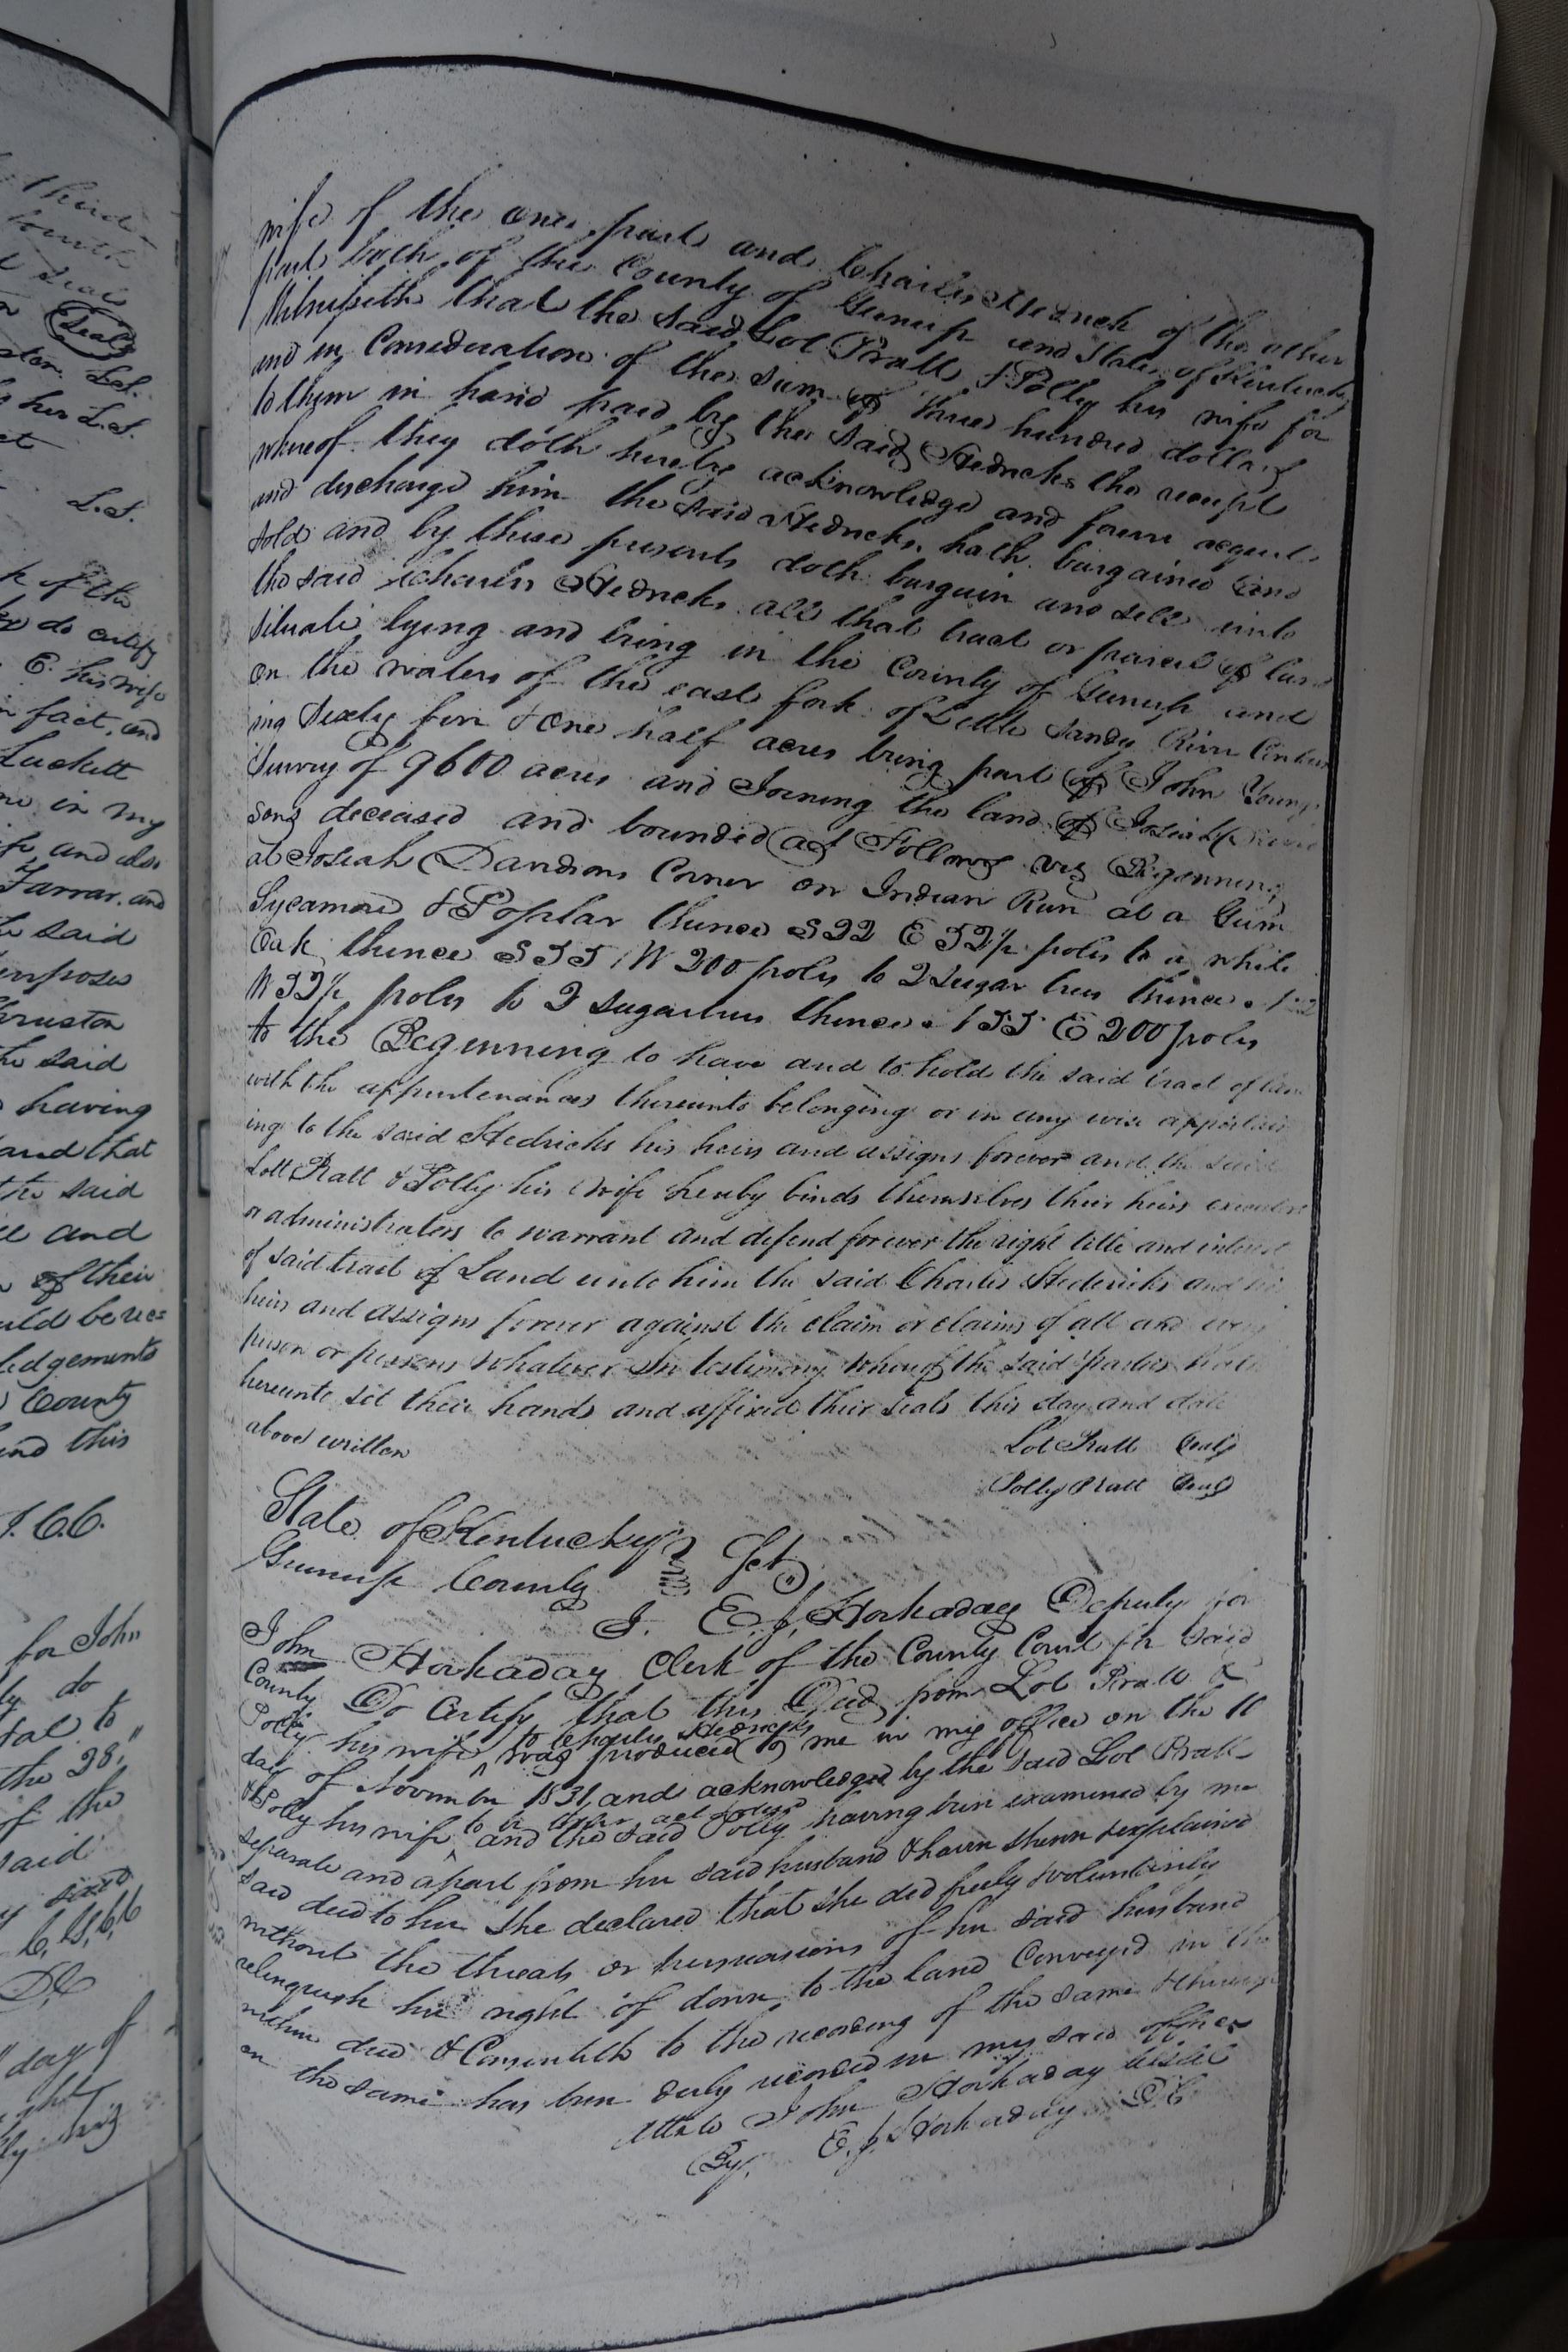 third
fourth
Seals
Seal
L.S.
her L.S.
L.S.
k of the
do certify
E. his wife
in fact, and
Luckett
me in my
and also
Farrar, and
said
purposes
Thruston
the said
having
and that
the said
and
of their
ledgements
County
and this
J.C.C.
for John
ly do
to
the 28"
of the
said
DC
day of
wife of the one part and Charles Hedrick of the other
part both of the County of Greenup and State of Kentucky
Witnesseth that the said Lot Pratt & Polly his wife for
and in Consideration of the sum of three hundred dollars
to them in hand paid by the said Hedricks the receipt
whereof they doth hereby acknowledge and forever acquit
and discharge him the said Hedricks, hath bargained and
sold and by these presents doth bargain and sell unto
the said Charles Hedricks all that tract or parcel of
situate lying and being in the County of Greenup and
on the waters of the east fork of Little Sandy River
ing Sixty five & one half acres being part of John Young
Survey of 9600 acres and Joining the land of Josiah
son deceased and bounded as Follows viz Beginning
at Josiah Davidsons Corner on Indian Run at a Gum
Sycamore & Poplar thence S 22 E 52½ poles to a white
Oak thence S 55 W 200 poles to 2 Sugar trees thence
W 52½ poles to 2 sugartrees thence N 55 E 200 poles
to the Beginning to have and to hold the said tract of
with the appurtenances thereunto belonging or in any wise appertain
ing to the said Hedricks his heirs and assigns forever and the said
Lott Pratt & Polly his wife hereby binds themselves their heirs
or administrators to warrant and defend forever the right title and interest
of said tract of Land unto him the said Charles Hedericks and
heirs and assigns forever against the claim or claims of all and every
person or persons whatever In testimony whereof the said parties
hereunto set their hands and affixed their seals this day and date
above written
Lot Pratt Seal
Polly Pratt Seal
State of Kentucky
Greenup County Sct
I. E. J. Hockaday Deputy for
John Hockaday Clerk of the County Court for said
County Do Certify that this Deed from Lot Pratt &
Polly his wife to Charles Hedricks was produced to me in my office on the 10
day of November 1831, and acknowledged by the said Lot Pratt
& Polly his wife to be their act & deed and the said Polly having been examined by me
separate and apart from her said husband & haven shewn & explained
said deed to her She declared that she did freely & voluntarily
without the threats or persuasions of her said husband
relinquish her right of dower to the land Conveyed in the
within deed & Consenteth to the recording of the same
on the same has been duly recorded in my said office
Attest John Hockaday
By. E. J. Hockaday DC